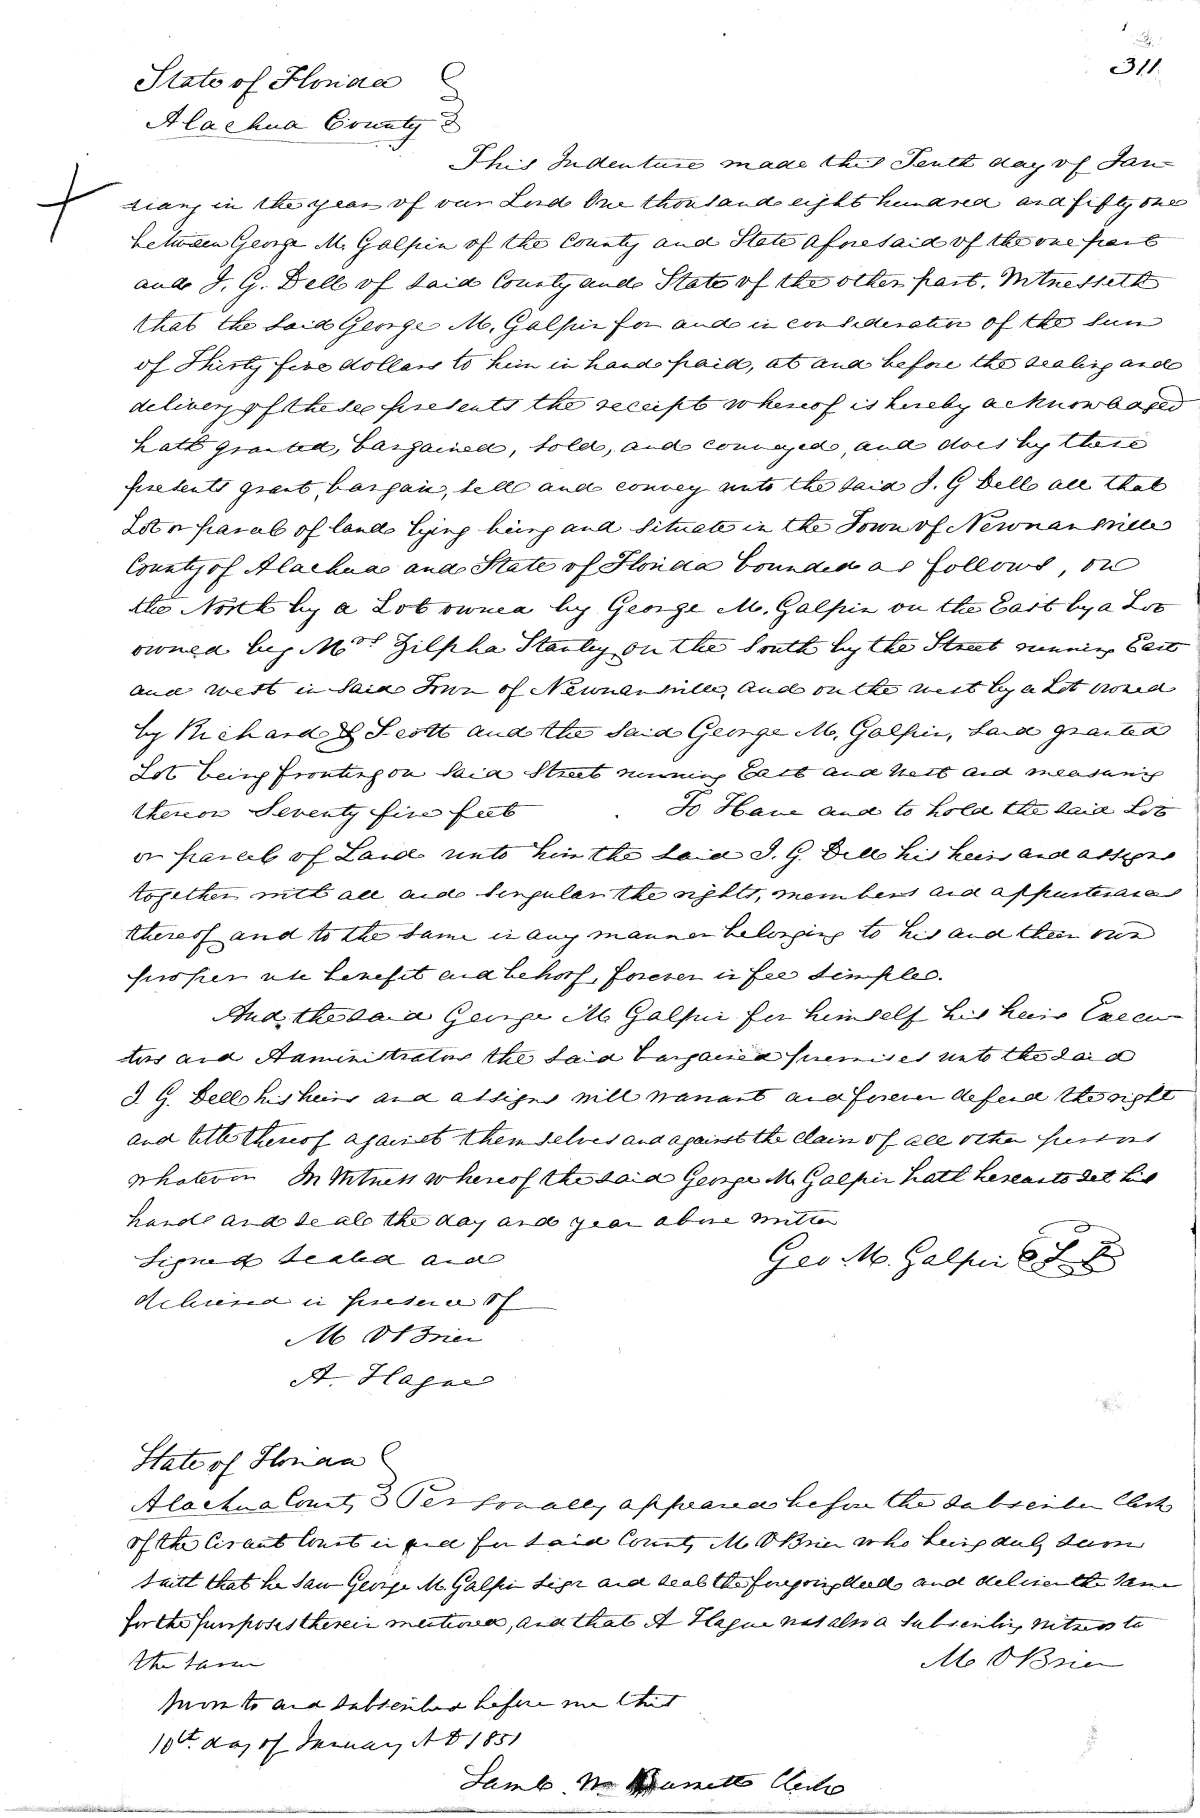 311
State of Florida
Alachua County
This Indenture made this Tenth day of Jan-
uary in the year of our Lord One thousand eight hundred and fifty one
between George M. Galpin of the County and State aforesaid of the one part
and J. G. Dell of said County and State of the other part. Witnesseth
that the said George M. Galpin for and in consideration of the sum
of Thirty five dollars to him in hand paid, at and before the sealing and
delivery of these presents the receipt whereof is hereby acknowledged
hath granted, bargained, sold, and conveyed, and does by these
presents grant, bargain, sell and convey unto the said J. G Dell all that
Lot or parcel of land lying being and situate in the Town of Newnansville
County of Alachua and State of Florida bounded as follows, on
the North by a Lot owned by George M. Galpin on the East by a Lot
owned by Mrs Zilpha Stanley on the South by the Street running East
and west in said Town of Newnansville, and on the west by a Lot owned
by Richard Scott and the said George M. Galpin, said granted
Lot being fronting on said Street running East and West and measuring
thereon Seventy five feet . To Have and to hold the said Lot
or parcel of Land unto him the said J. G. Dell his heirs and assigns
together with all and singular the rights, members and appurtenances
thereof and to the same in any manner belonging to his and their own
proper use benefit and behoof, forever in fee simple.
And the said George M Galpin for himself his heirs Execu-
tors and Administrators the said bargained premises unto the said
J. G. Dell his heirs and assigns will warrant and forever defend the right
and title thereof against themselves and against the claim of all other persons
whatever In Witness whereof the said George M. Galpin hath hereunto set his
hand and seal the day and year above written
Signed sealed and
delivered in presence of
Geo. M. Galpin L S
M OBrien
A. Hague
State of Florida
Alachua County Personally appeared before the subscriber Clerk
of the Circuit Court in and for said County M OBrien who being duly sworn
saith that he saw George M. Galpin sign and seal the foregoing deed and deliver the same
for the purposes therein mentioned, and that A Hague was also a subscribing witness to
the same
M OBrien
Sworn to and subscribed before me this
10th day of January A D 1851
Clerk